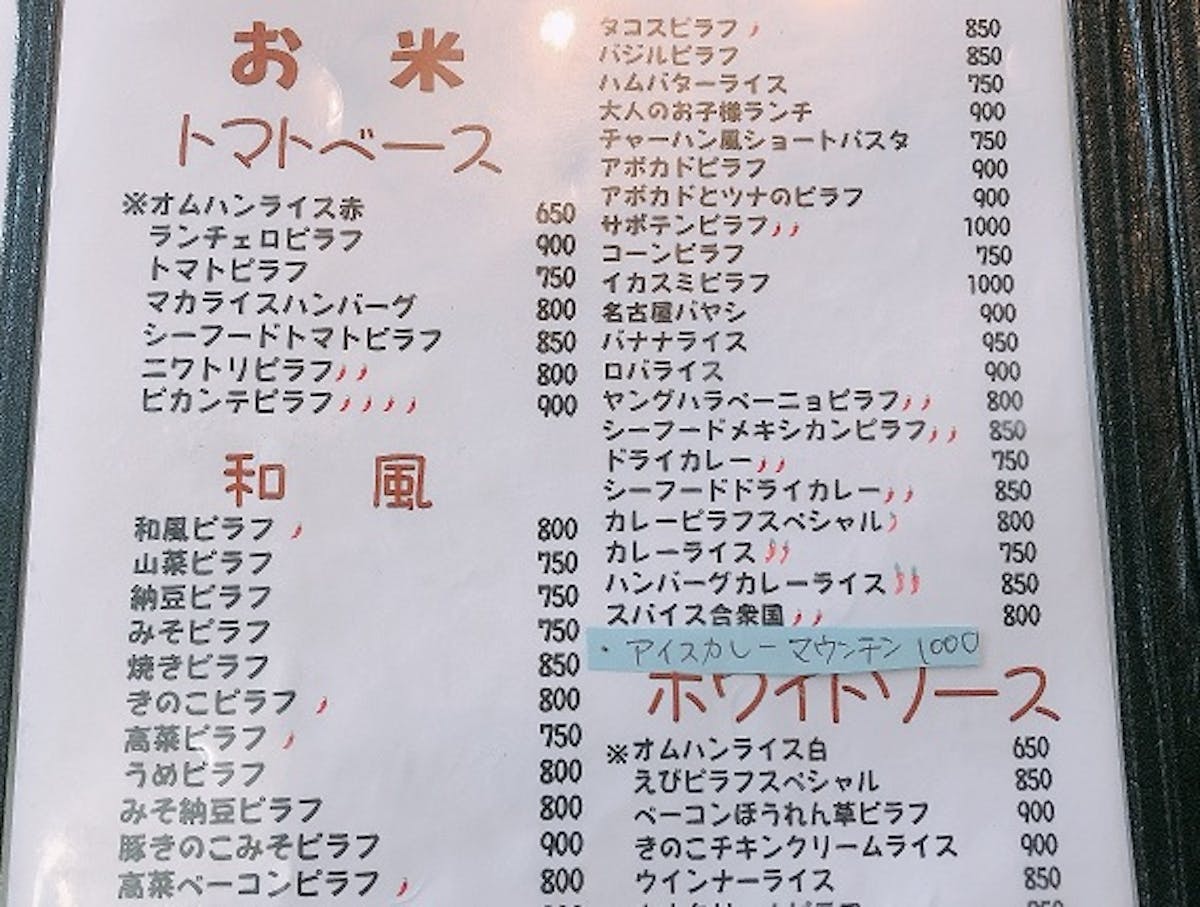 お 米
トマトベース
※オムハンライス赤 650
ランチェロピラフ 900
トマトピラフ 750
マカライスハンバーグ 800
シーフードトマトピラフ 850
ニワトリピラフ 800
ピカンテピラフ 900
和 風
和風ピラフ 800
山菜ピラフ 750
納豆ピラフ 750
みそピラフ 750
焼きピラフ 850
きのこピラフ 800
高菜ピラフ 750
うめピラフ 800
みそ納豆ピラフ 800
豚きのこみそピラフ 900
高菜ベーコンピラフ 800
タコスピラフ 850
バジルピラフ 850
ハムバターライス 750
大人のお子様ランチ 900
チャーハン風ショートパスタ 750
アボカドピラフ 900
アボカドとツナのピラフ 900
サボテンピラフ 1000
コーンピラフ 750
イカスミピラフ 1000
名古屋バヤシ 900
バナナライス 950
ロバライス 900
ヤングハラペーニョピラフ 800
シーフードメキシカンピラフ 850
ドライカレー 750
シーフードドライカレー 850
カレーピラフスペシャル 800
カレーライス 750
ハンバーグカレーライス 850
スパイス合衆国 800
・アイスカレーマウンテン 1000
ホワイトソース
※オムハンライス白 650
えびピラフスペシャル 850
ベーコンほうれん草ピラフ 900
きのこチキンクリームライス 900
ウインナーライス 850